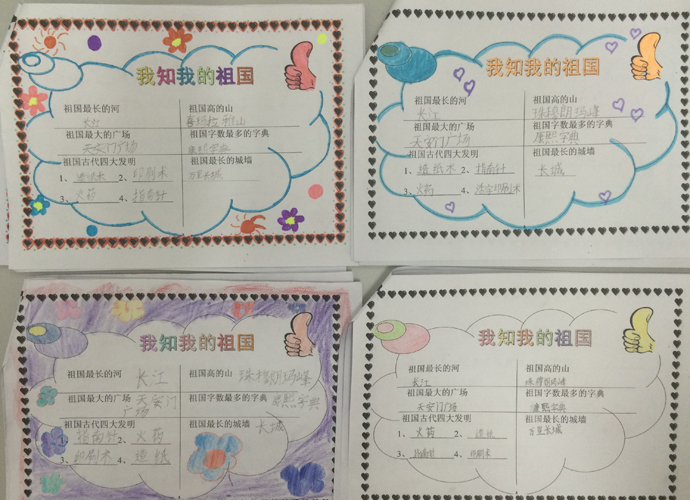 我知我的祖国
祖国最长的河 祖国高的山
长江 喜玛拉雅山
祖国最大的广场 祖国字数最多的字典
天安门广场 康熙字典
祖国古代四大发明 祖国最长的城墙
1、 2、印刷术 万里长城
3、火药 4、指南针
我知我的祖国
祖国最长的河 祖国高的山
长江 珠穆朗玛峰
祖国最大的广场 祖国字数最多的字典
天安门广场 康熙字典
祖国古代四大发明 祖国最长的城墙
1、造纸术 2、指南针 长城
3、火药 4、活字印刷术
我知我的祖国
祖国最长的河 长江 祖国高的山 珠穆朗玛峰
祖国最大的广场 天安门广场 祖国字数最多的字典 康熙字典
祖国古代四大发明 祖国最长的城墙 长城
1、指南针 2、火药
3、印刷术 4、造纸
我知我的祖国
祖国最长的河 祖国高的山
长江 珠穆朗玛峰
祖国最大的广场 祖国字数最多的字典
天安门广场 康熙字典
祖国古代四大发明 祖国最长的城墙
1、火药 2、造纸 万里长城
3、指南针 4、印刷术